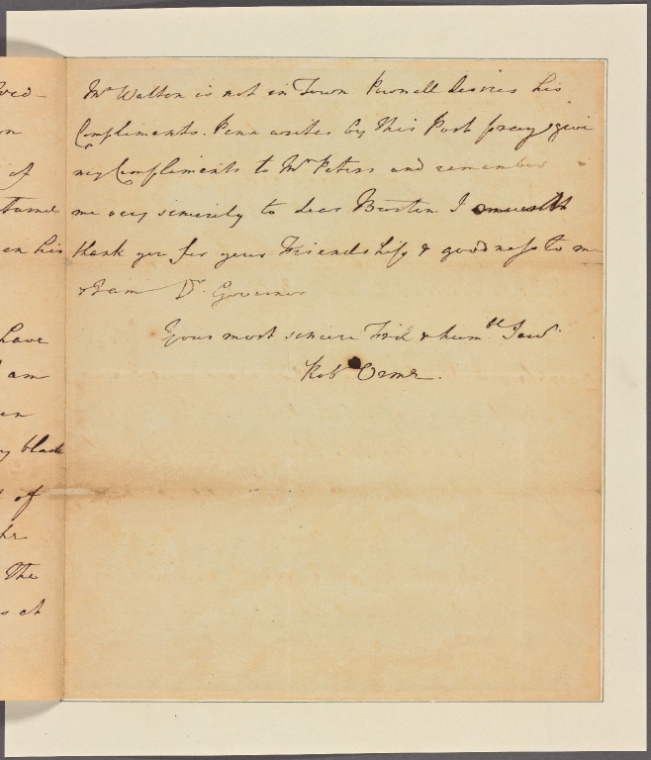 ved
on
of
turned
en his
have
I am
en
y black
d of
he
The
s at
Mr Walton is not in Town Pownell desires his
Compliments. Penn writes by this Post pray give
my Compliments to Mr Peters and remember
me very sincerely to dear Burton I
thank you for your Friendship & goodness to me
& I am Dr. Governor
Your most sincere Frd & humble Serv.
Robt Orme.